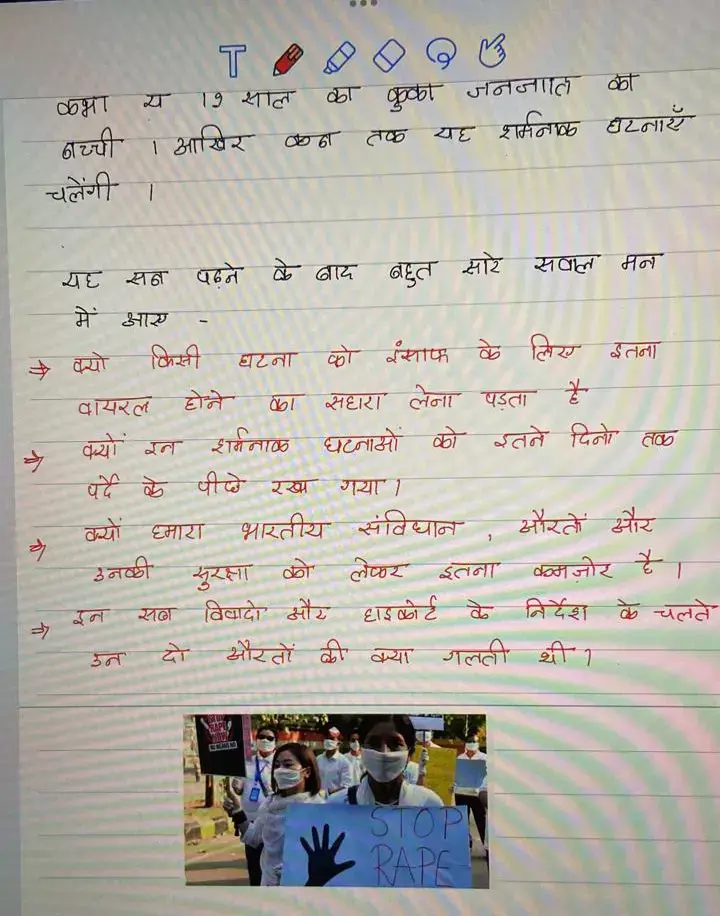 T
कभी ये 19 साल की कुकी जनजाति की
बच्ची । आखिर कब तक यह शर्मनाक घटनाएँ
चलेंगी ।
यह सब पढ़ने के बाद बहुत सारे सवाल मन
में आए -
⇒ क्यो किसी घटना को इंसाफ के लिए इतना
वायरल होने का सहारा लेना पड़ता है
⇒ क्यों इन शर्मनाक घटनाओं को इतने दिनो तक
पर्दे के पीछे रखा गया ।
⇒ क्यों हमारा भारतीय संविधान , औरतों और
उनकी सुरक्षा को लेकर इतना कमज़ोर है ।
⇒ इन सब विवादो और हाइकोर्ट के निर्देश के चलते
उन दो औरतों की क्या गलती थी ?
STOP
RAPE